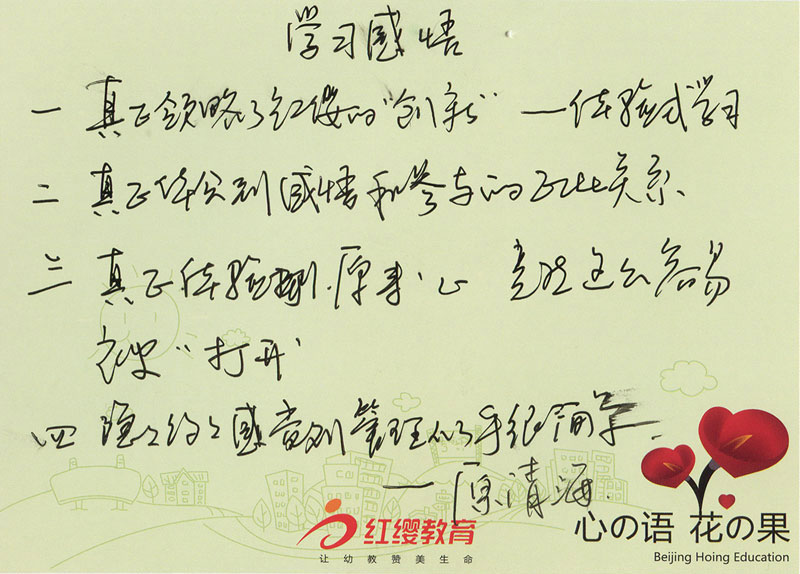 学习感悟
一 真正领略了红缨的"创新" —体验式学习
二 真正体会到感悟和参与的正比关系.
三 真正体验到.原来"心"竟然这么容易
被"打开"
四 隐隐约约感觉到管理似乎很简单.
—原清海.
红缨教育
让幼教赞美生命
心の语 花の果
Beijing Hoing Education